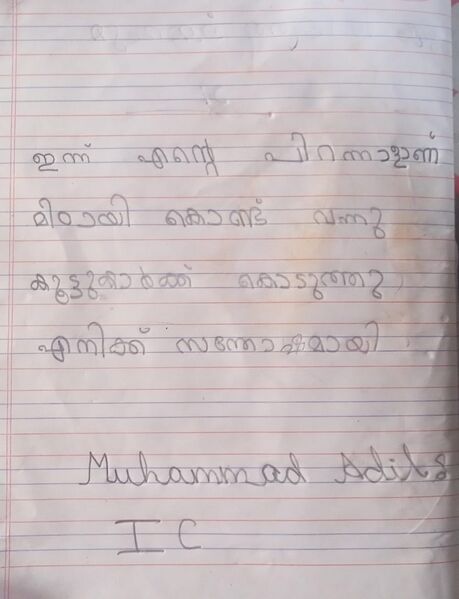 ഇന്ന് എന്റെ പിറന്നാളാണ്
മിഠായി കൊണ്ട് വന്നു
കൂട്ടുകാർക്ക് കൊടുത്തു
എനിക്ക് സന്തോഷമായി.
Muhammad Adil S
I C